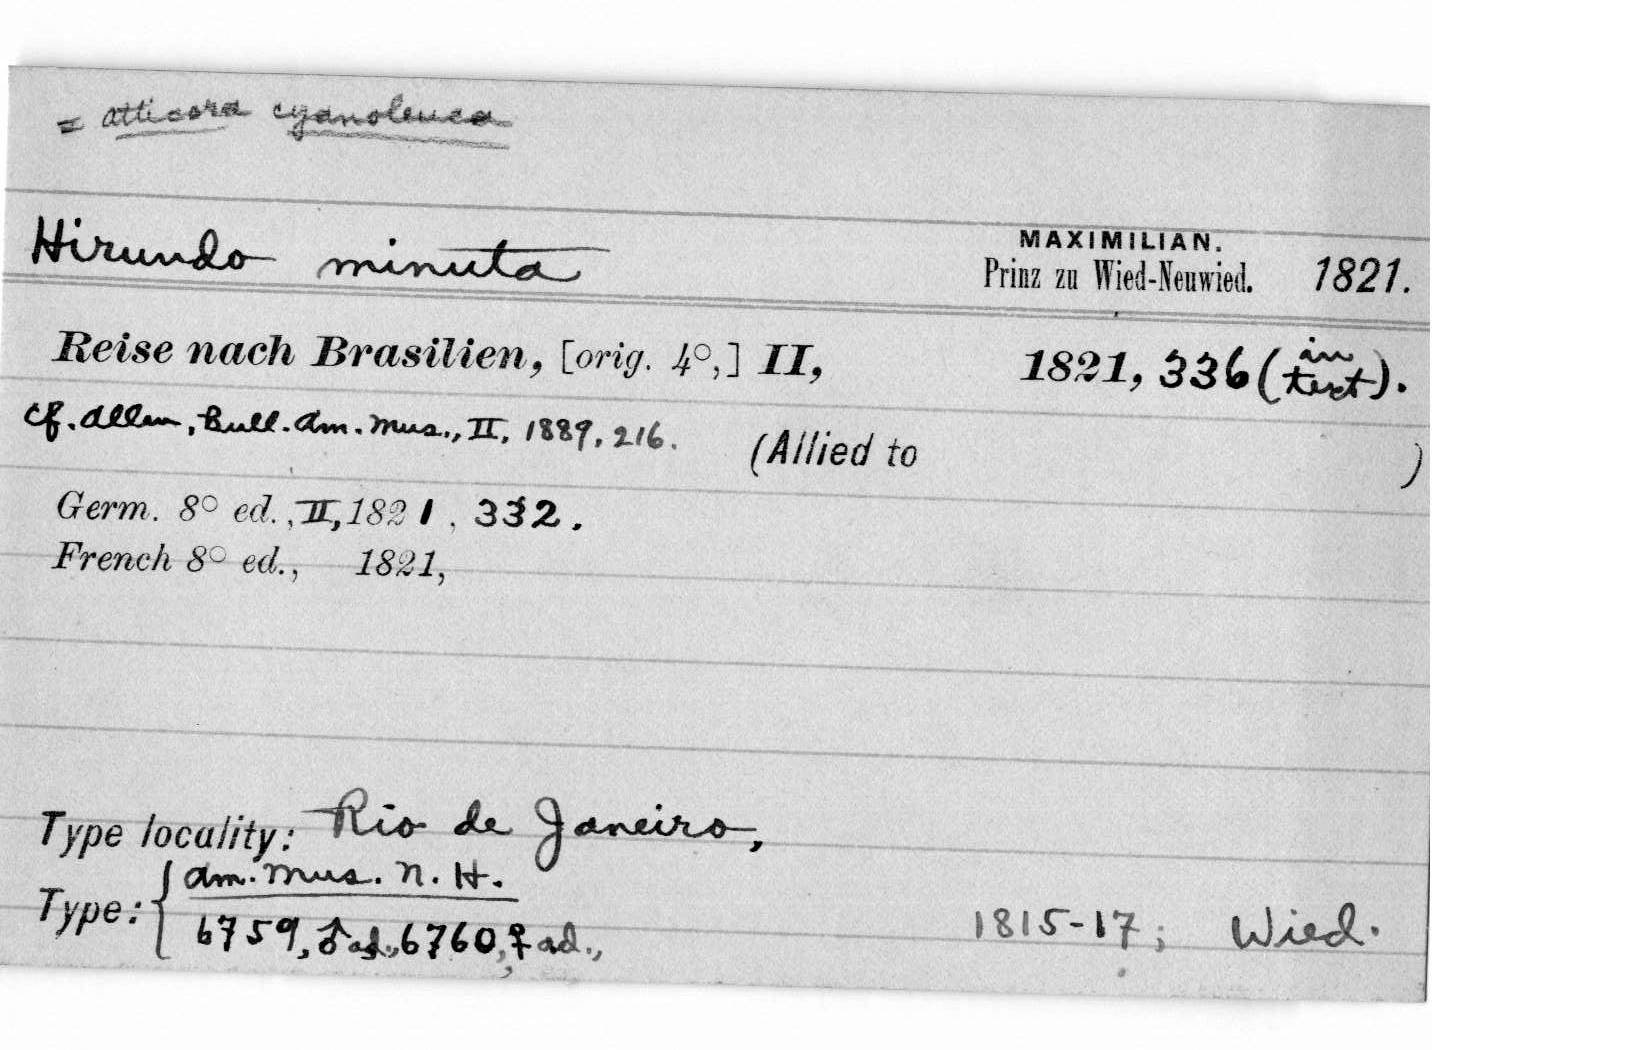 = Atticora cyanoleuca
Hirundo minuta
MAXIMILIAN.
Prinz zu Wied-Neuwied. 1821.
Reise nach Brasilien, [orig. 4°,] II, 1821, 336 (in text).
Cf. Allen, Bull. Am. Mus., II, 1889, 216. (Allied to )
Germ. 8° ed., II, 1821, 332.
French 8° ed., 1821,
Type locality: Rio de Janeiro,
Type: { Am. Mus. N. H.
6759, ♂ ad., 6760, ♀ ad., 1815-17; Wied.